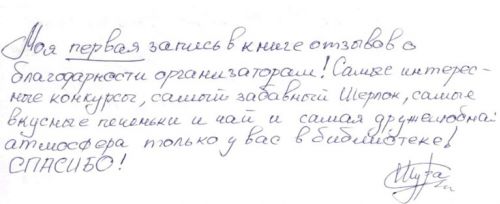 Моя первая запись в книге отзывов о
благодарности организаторам! Самые интерес-
ные конкурсы, самый забавный Шерлок, самые
вкусные печеньки и чай и самая дружелюбная
атмосфера только у вас в библиотеке!
СПАСИБО!